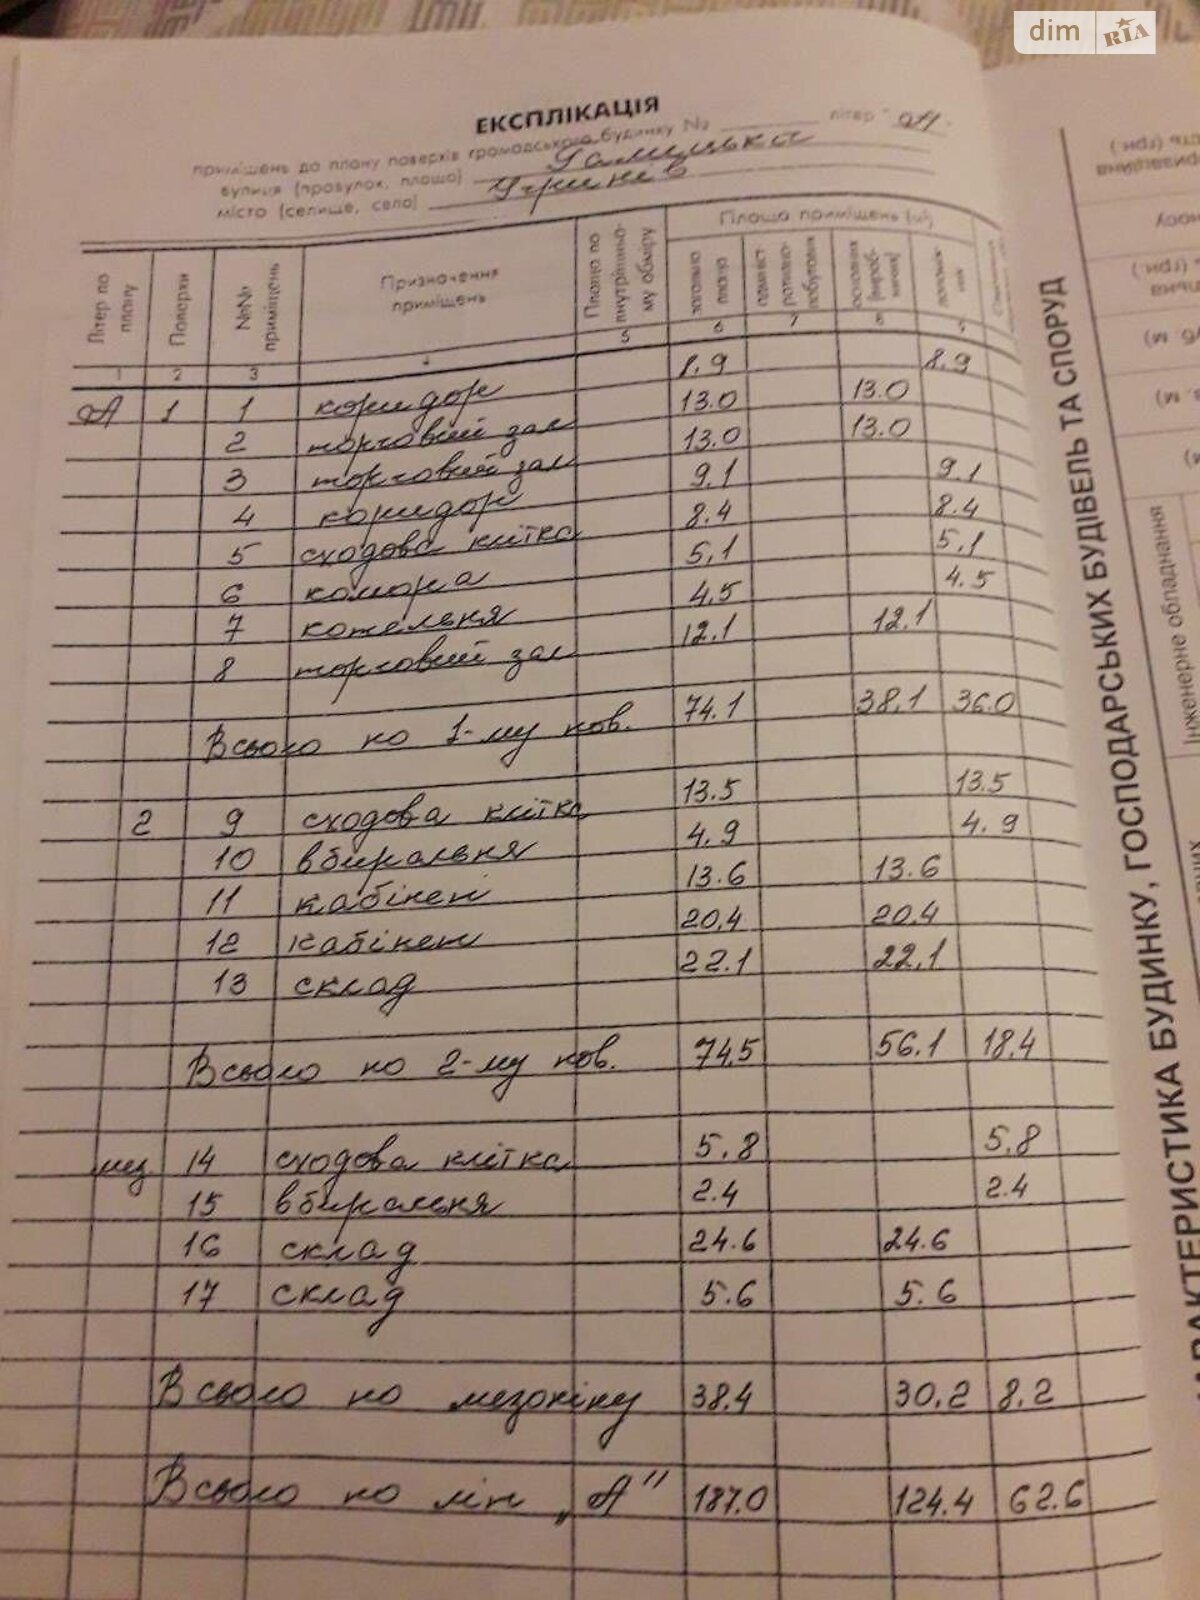 dim RIA
ЕКСПЛІКАЦІЯ
приміщень до плану поверхів громадського будинку № літер "А"
вулиця (провулок, площа) Галицька
місто (селище, село) Угринів
Літер по плану
Поверхи
№№ приміщень
Призначення приміщень
Площа по внутрішньому обміру
Площа приміщень (м²)
загальна площа
1 2 3 4 5 6 7 8 9
А 1 1 коридор 8.9 8.9
2 торговий зал 13.0 13.0
3 торговий зал 13.0 13.0
4 коридор 9.1 9.1
5 сходова клітка 8.4 8.4
6 комора 5.1 5.1
7 котельня 4.5 4.5
8 торговий зал 12.1 12.1
Всього по 1-му пов. 74.1 38.1 36.0
2 9 сходова клітка 13.5 13.5
10 вбиральня 4.9 4.9
11 кабінет 13.6 13.6
12 кабінет 20.4 20.4
13 склад 22.1 22.1
Всього по 2-му пов. 74.5 56.1 18.4
мез. 14 сходова клітка 5.8 5.8
15 вбиральня 2.4 2.4
16 склад 24.6 24.6
17 склад 5.6 5.6
Всього по мезоніну 38.4 30.2 8.2
Всього по літ „А" 187.0 124.4 62.6
АРАКТЕРИСТИКА БУДИНКУ, ГОСПОДАРСЬКИХ БУДІВЕЛЬ ТА СПОРУД
Інженерне обладнання